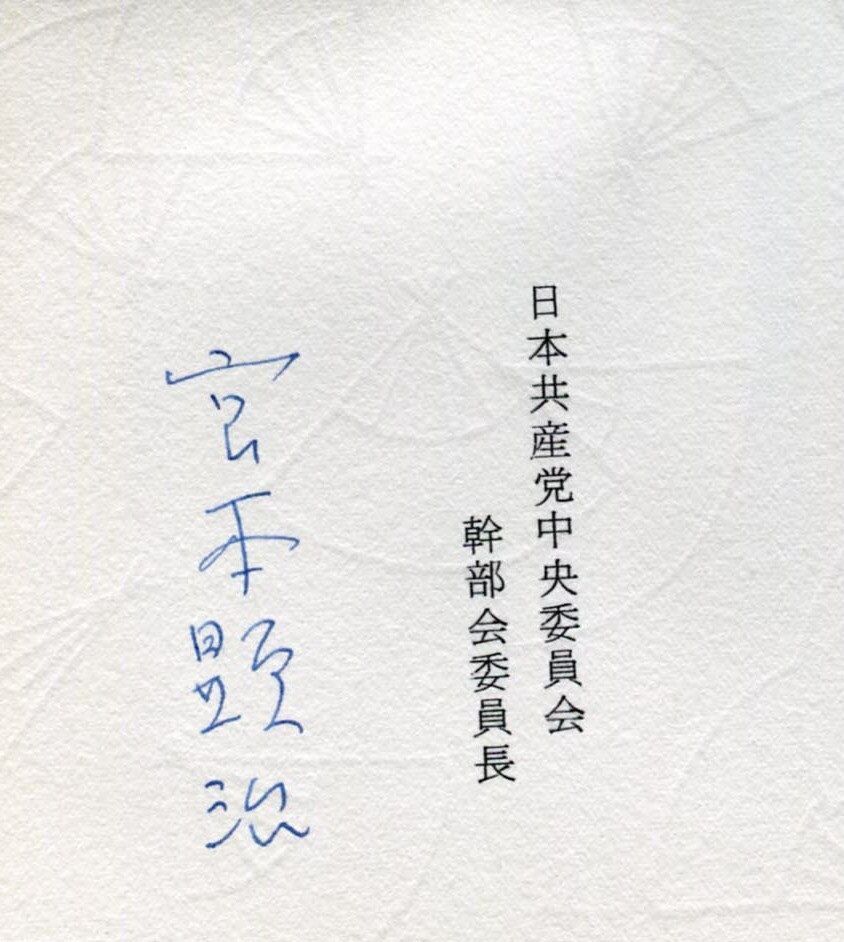 日本共産党中央委員会
幹部会委員長
宮本顕治